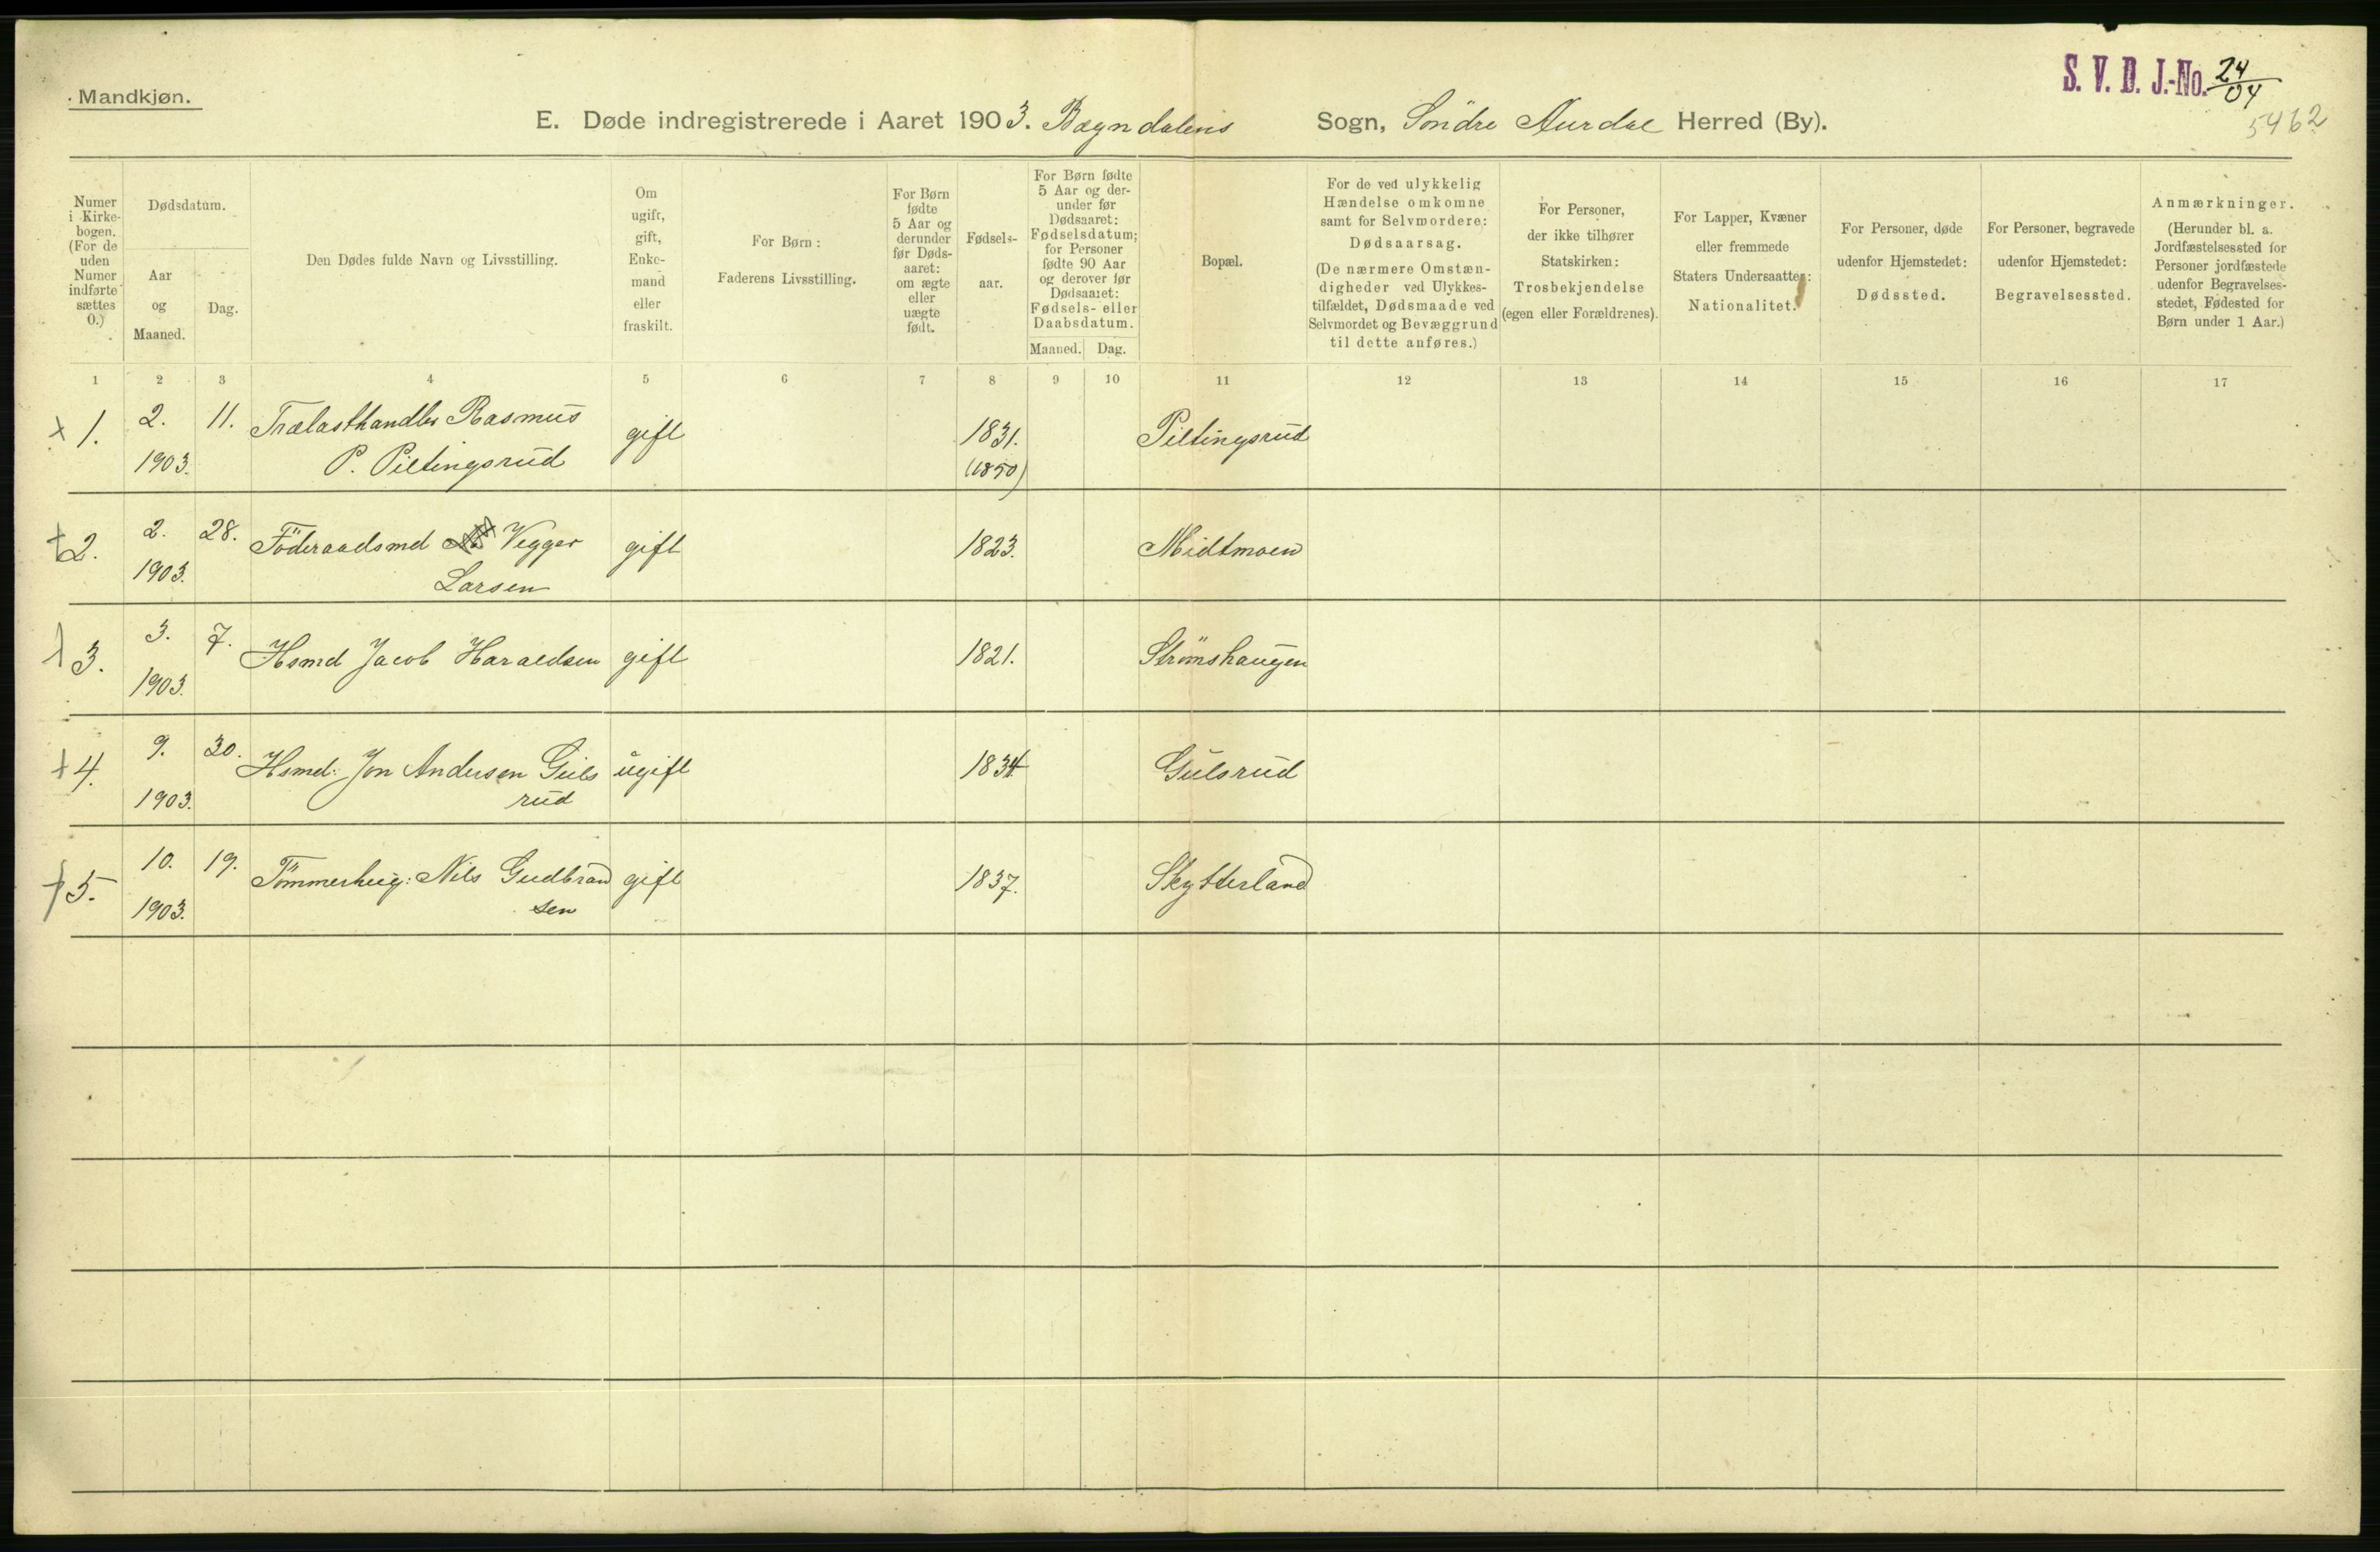 S. V. D. J.-No. 24/04
5462
Mandkjøn.
E. Døde indregistrerede i Aaret 1903. Bægndalens Sogn, Söndre Aurdal Herred (By).
Numer i Kirkebogen. (For de uden Numer indførte sættes 0.)
Dødsdatum.
Aar og Maaned.
Dag.
Den Dødes fulde Navn og Livsstilling.
Om ugift, gift, Enkemand eller fraskilt.
For Børn:
Faderens Livsstilling.
For Børn fødte 5 Aar og derunder før Dødsaaret: om ægte eller uægte født.
Fødselsaar.
For Børn fødte 5 Aar og derunder før Dødsaaret: Fødselsdatum; for Personer fødte 90 Aar og derover før Dødsaaret: Fødsels- eller Daabsdatum.
Maaned. Dag.
Bopæl.
For de ved ulykkelig Hændelse omkomne samt for Selvmordere: Dødsaarsag.
(De nærmere Omstændigheder ved Ulykkestilfældet, Dødsmaade ved Selvmordet og Bevæggrund til dette anføres.)
For Personer, der ikke tilhører Statskirken: Trosbekjendelse (egen eller Forældrenes).
For Lapper, Kvæner eller fremmede Staters Undersaatter: Nationalitet.
For Personer, døde udenfor Hjemstedet: Dødssted.
For Personer, begravede udenfor Hjemstedet: Begravelsessted.
Anmærkninger.
(Herunder bl. a. Jordfæstelsessted for Personer jordfæstede udenfor Begravelsesstedet, Fødested for Børn under 1 Aar.)
1 2 3 4 5 6 7 8 9 10 11 12 13 14 15 16 17
1. 2. 11. Trælasthandler Rasmus gift 1831. Piltingsrud
1903. P. Piltingsrud (1850)
2. 2. 28. Föderaadsmd Veggar gift 1823. Midtmoen
1903. Larsen
3. 3. 7. Hsmd Jacob Haraldsen gift 1821. Strömshaugen
1903.
4. 9. 30. Hsmd: Jon Andersen Guls ugift 1834 Gulsrud
1903. rud
5. 10. 19. Tömmerhug: Nils Gudbrand gift 1837. Skytterland
1903. sen